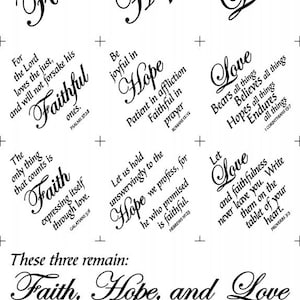 Faith
Hope
Love
For
the Lord
loves the just,
and will not forsake his
Faithful
ones.
PSALMS 37:28
Be
joyful in
Hope
Patient in affliction
Faithful in
prayer
ROMANS 12:12
Love
Bears all things
Believes all things
Hopes all things
Endures
1 CORINTHIANS 13:7
The
only thing
that counts is
Faith
expressing itself
through love.
GALATIANS 5:6
Let us hold
unswervingly to the
Hope we profess, for
he who promised
is faithful.
HEBREWS 10:23
Let
Love
and faithfulness
never leave you. Write
them on the
tablet of your
heart.
These three remain:
Faith, Hope, and Love